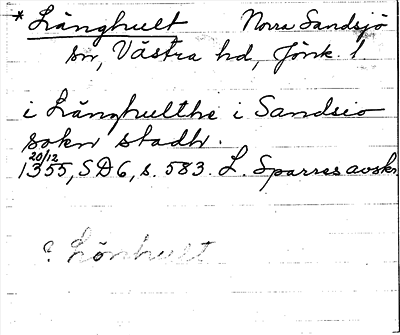 * Långhult Norra Sandsjö
sn, Västra hd, Jönk. l.
i Långhulthe i Sandsio
sokn stadh.
20/12
1355, SD6, s. 583. L. Sparres avskr.
? Lönhult